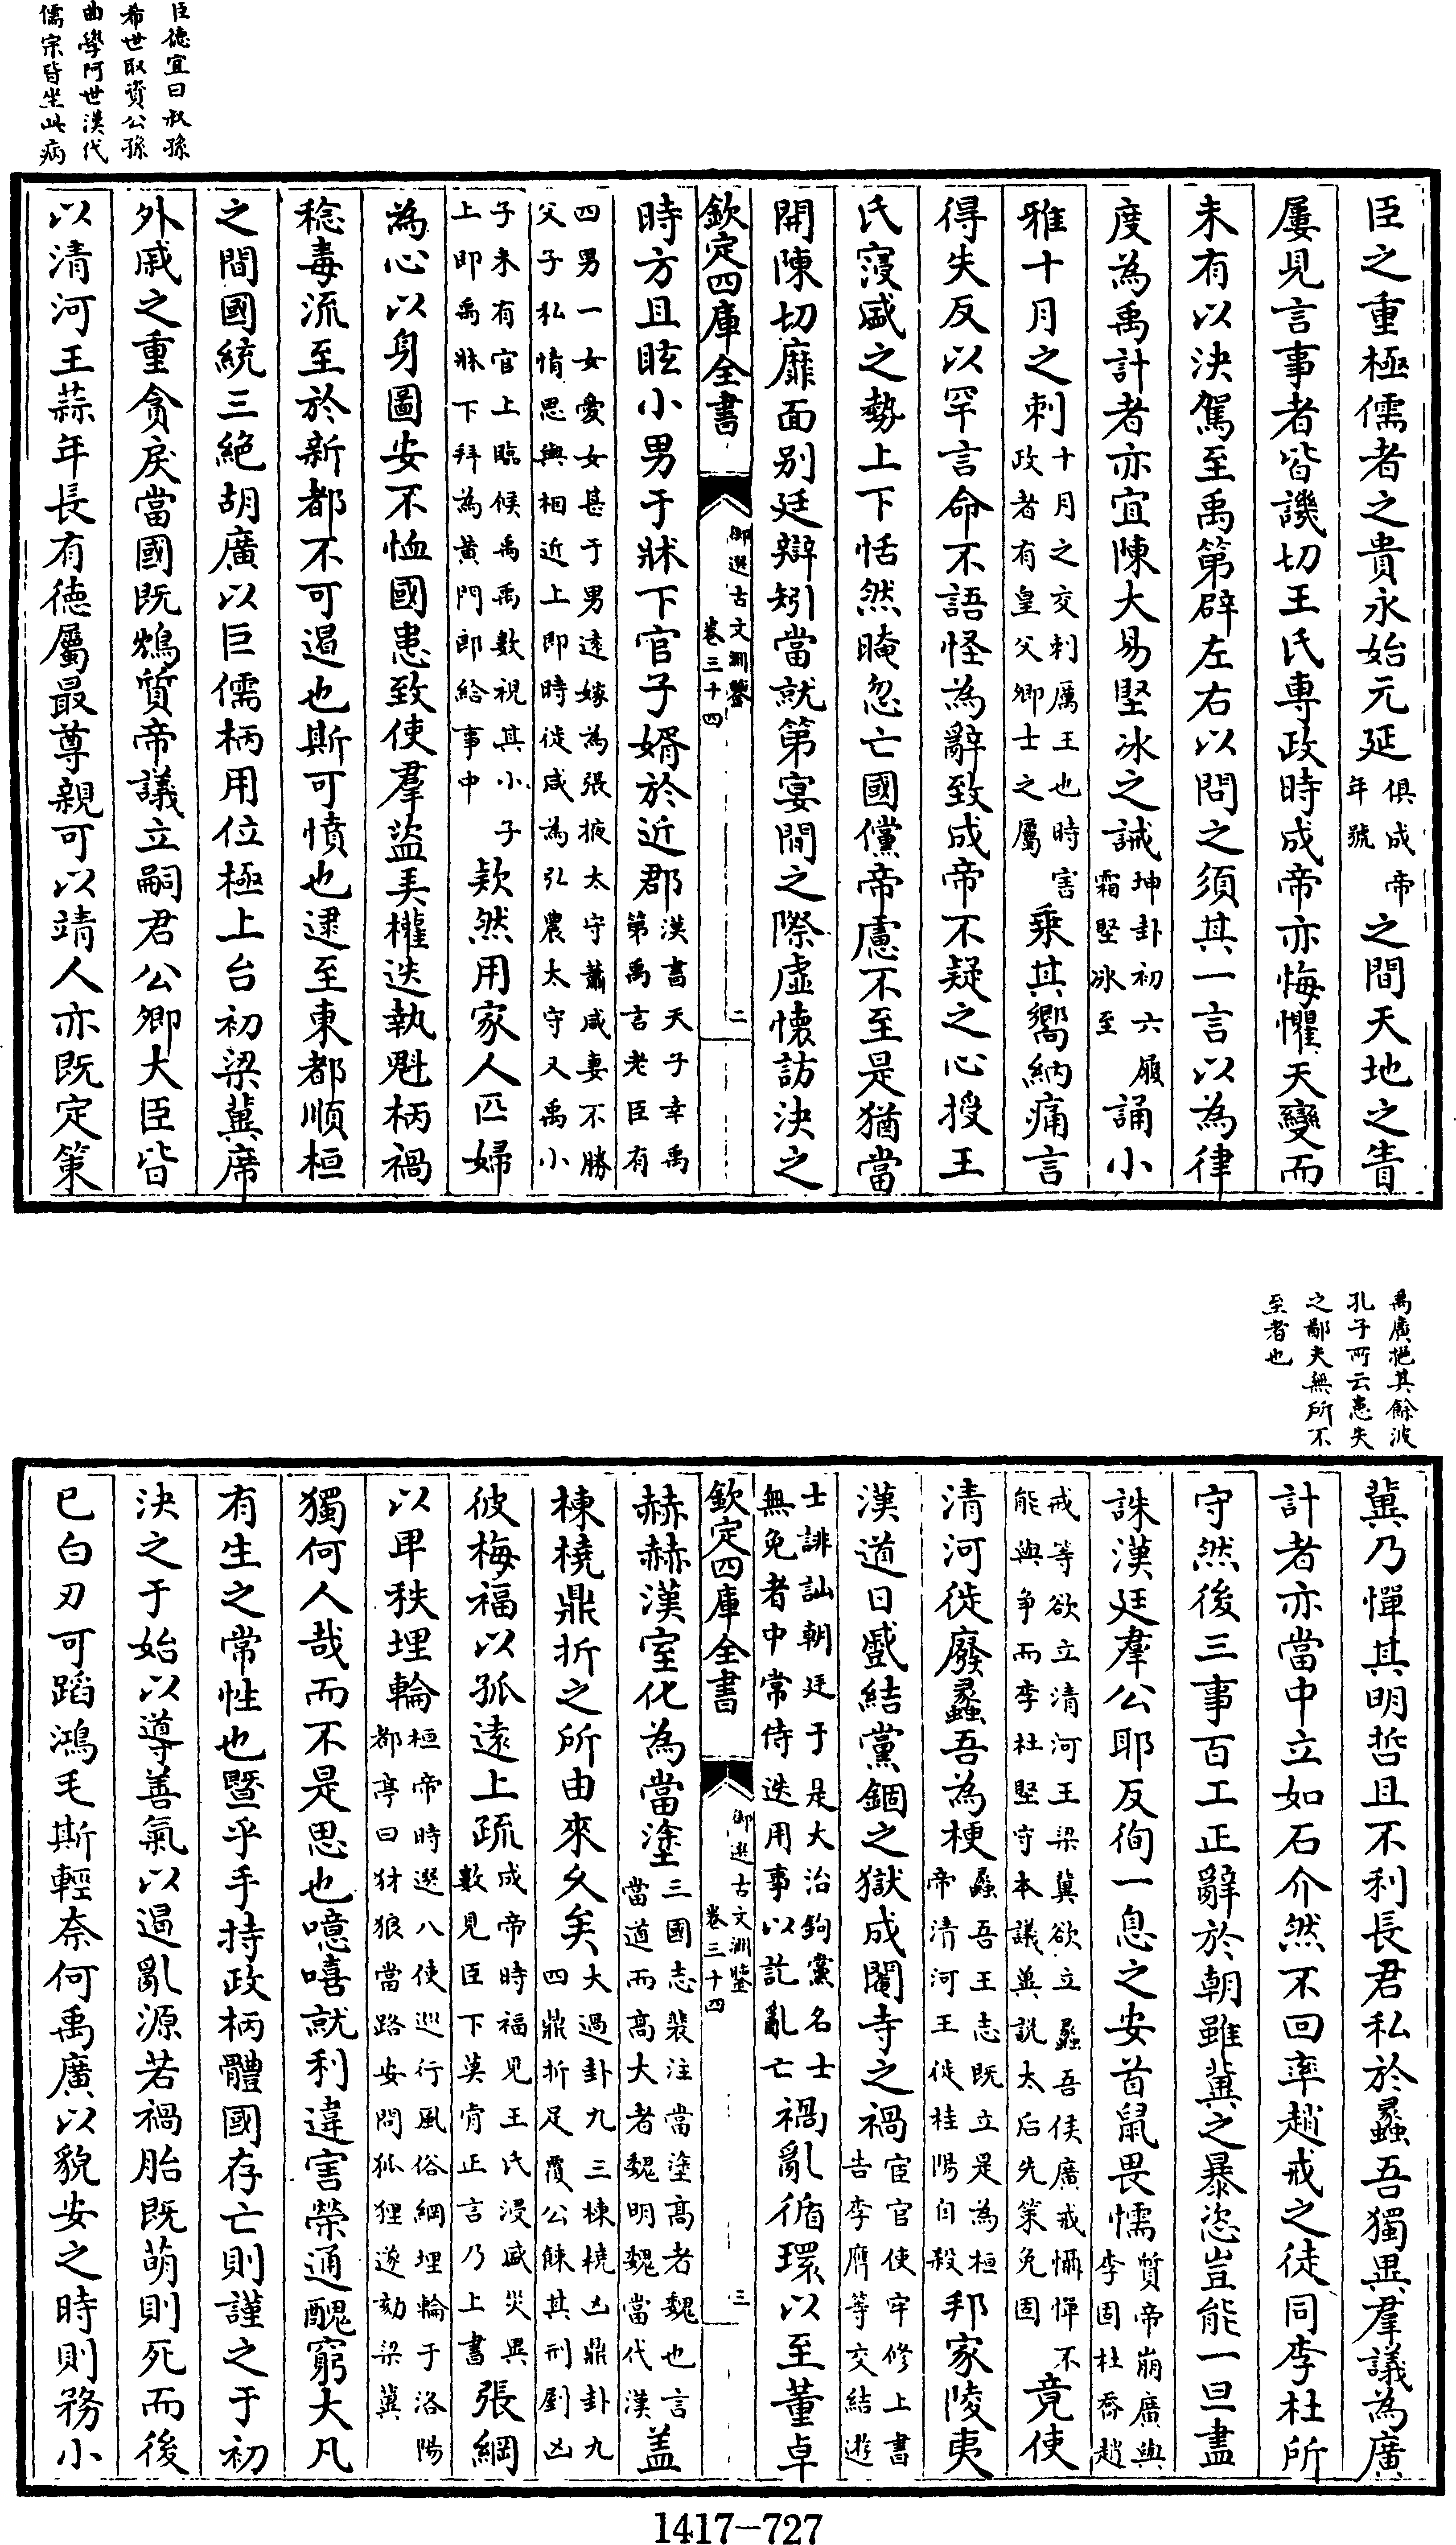 臣德宜曰叔孫
希世取資公孫
曲學阿世漢代
儒宗皆坐此病
臣之重極儒者之貴永始元延俱成帝年號之間天地之眚
屢見言事者皆譏切王氏専政時成帝亦悔懼天變而
未有以決駕至禹第辟左右以問之須其一言以為律
度為禹計者亦宜陳大易堅冰之誡坤卦初六履霜堅冰至誦小
雅十月之刺十月之交刺厲王也時政者有皇父卿士之屬害乘其嚮納痛言
得失反以罕言命不語怪為辭致成帝不疑之心授王
氏寖盛之勢上下恬然晻忽亡國儻帝慮不至是猶當
開陳切靡面别廷辯矧當就第宴間之際虚懐訪決之
欽定四庫全書
御選古文淵鑒
卷三十四
二
時方且眩小男于牀下官子婿於近郡漢書天子幸禹第禹言老臣有
四男一女愛女甚于男逺嫁為張掖太守蕭咸妻不勝父子私情思與相近上即時徙咸為弘農太守又禹小
子未有官上臨候禹禹數視其小子上即禹牀下拜為黄門郎給事中欵然用家人匹婦
為心以身圖安不恤國患致使羣盜弄權迭執魁柄禍
稔毒流至於新都不可遏也斯可憤也逮至東都順桓
之間國統三絶胡廣以巨儒柄用位極上台初梁冀席
外戚之重貪戾當國既鴆質帝議立嗣君公卿大臣皆
以清河王蒜年長有徳屬最尊親可以靖人亦既定策
禹廣挹其餘波
孔子所云患失
之鄙夫無所不
至者也
冀乃憚其明哲且不利長君私於蠡吾獨異羣議為廣
計者亦當中立如石介然不回率趙戒之徒同李杜所
守然後三事百工正辭於朝雖冀之暴恣豈能一旦盡
誅漢廷羣公耶反徇一息之安首鼠畏懦質帝崩廣與李固杜喬趙
戒等欲立清河王梁冀欲立蠡吾侯廣戒懾憚不能與争而李杜堅守本議冀説太后先策免固竟使
清河徙廢蠡吾為梗蠡吾王志既立是為桓帝清河王徙桂陽自殺邦家陵夷
漢道日蹙結黨錮之獄成閹寺之禍宦官使牢修上書告李膺等交結遊
士誹訕朝廷于是大治鉤黨名士無免者中常侍迭用事以訖亂亡禍亂循環以至董卓
欽定四庫全書
御選古文淵鑒
卷三十四
三
赫赫漢室化為當塗三國志裴注當塗髙者魏也言當道而髙大者魏明魏當代漢盖
棟橈鼎折之所由來乆矣大過卦九三棟橈凶鼎卦九四鼎折足覆公餗其刑剭凶
彼梅福以孤逺上疏成帝時福見王氏浸盛災異數見臣下莫肯正言乃上書張綱
以卑秩埋輪桓帝時選八使巡行風俗綱埋輪于洛陽都亭曰豺狼當路安問狐狸遂劾梁冀
獨何人哉而不是思也噫嘻就利違害榮通醜窮大凡
有生之常性也暨乎手持政柄體國存亡則謹之于初
決之于始以導善氣以遏亂源若禍胎既萌則死而後
已白刃可蹈鴻毛斯輕奈何禹廣以貌安之時則務小
1417-727